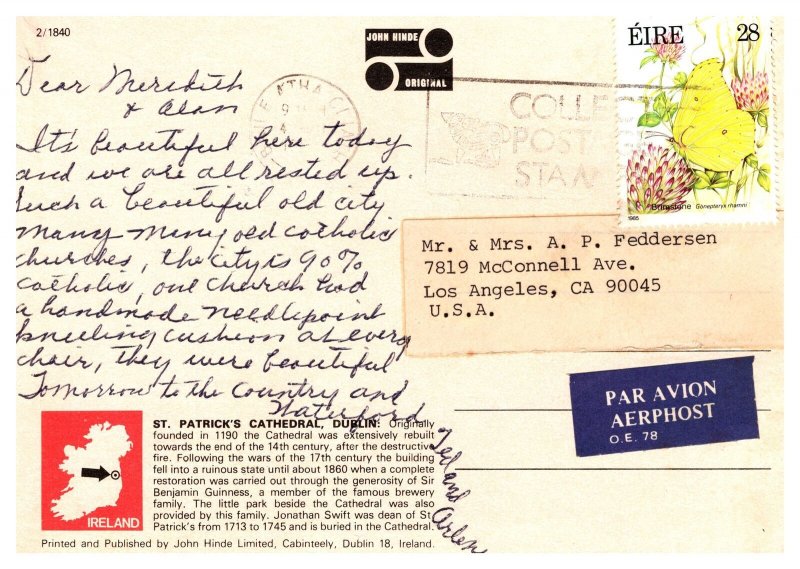 2/1840
JOHN HINDE
ORIGINAL
Dear Meredith
& Alan
It's beautiful here today
and we are all rested up.
Such a beautiful old city
many many old catholic
churches, the city is 90%
catholic, one church had
a handmade needlepoint
kneeling cushion at every
chair, they were beautiful
Tomorrow to the Country and
Waterford
Ted and Arlen
ÁTHA CL
COLLE
POST
STAM
ÉIRE 28
Brimstone Gonepteryx rhamni
1985
Mr. & Mrs. A. P. Feddersen
7819 McConnell Ave.
Los Angeles, CA 90045
U.S.A.
PAR AVION
AERPHOST
O.E. 78
IRELAND
ST. PATRICK'S CATHEDRAL, DUBLIN: Originally
founded in 1190 the Cathedral was extensively rebuilt
towards the end of the 14th century, after the destructive
fire. Following the wars of the 17th century the building
fell into a ruinous state until about 1860 when a complete
restoration was carried out through the generosity of Sir
Benjamin Guinness, a member of the famous brewery
family. The little park beside the Cathedral was also
provided by this family. Jonathan Swift was dean of St
Patrick's from 1713 to 1745 and is buried in the Cathedral.
Printed and Published by John Hinde Limited, Cabinteely, Dublin 18, Ireland.